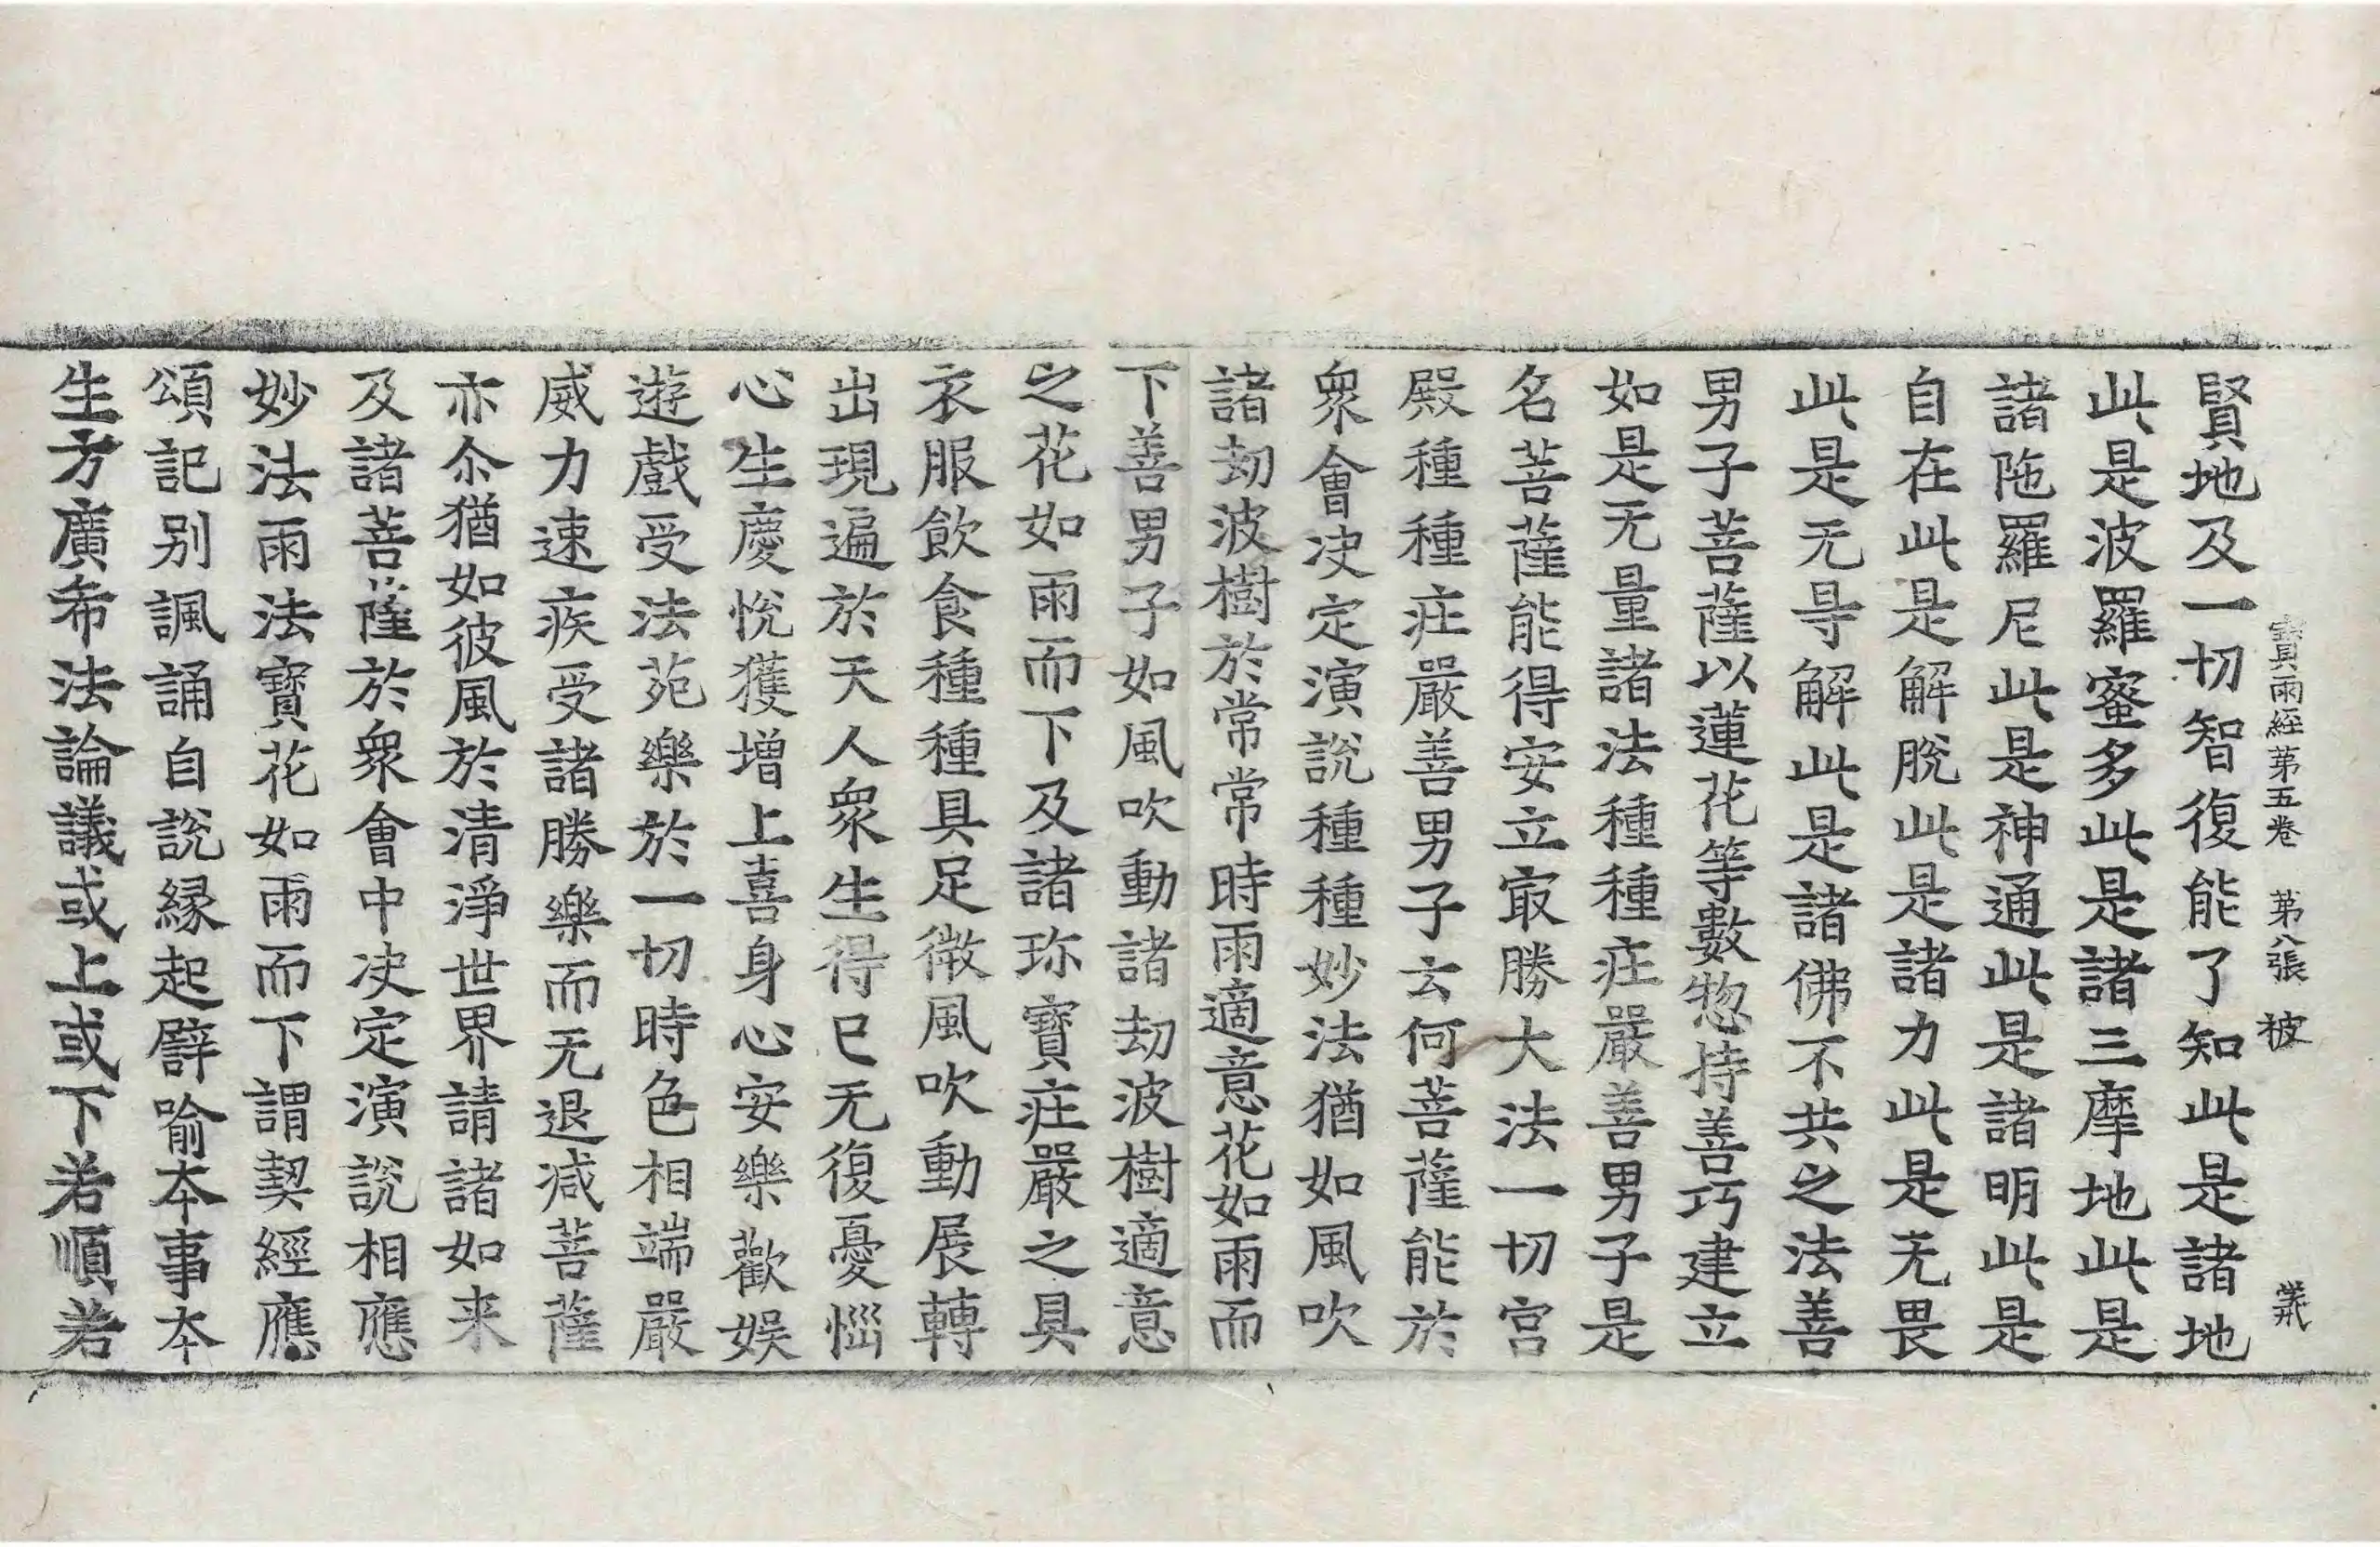 寶雨經第五卷　第八張　被
賢地及一切智復能了知此是諸地
此是波羅蜜多此是諸三摩地此是
諸陁羅尼此是神通此是諸明此是
自在此是解脫此是諸力此是无畏
此是无㝵解此是諸佛不共之法善
男子菩薩以蓮花等數惣持善巧建立
如是无量諸法種種庄嚴善男子是
名菩薩能得安立㝡勝大法一切宮
殿種種庄嚴善男子云何菩薩能於
衆會决定演說種種妙法猶如風吹
諸劫波樹於常常時雨適意花如雨而
下善男子如風吹動諸劫波樹適意
之花如雨而下及諸珎寶庄嚴之具
衣服飲食種種具足微風吹動展轉
出現遍於天人衆生得已无復憂惱
心生慶悅獲增上喜身心安樂歡娛
遊戲受法苑樂於一切時色相端嚴
威力速疾受諸勝樂而无退减菩薩
亦尒猶如彼風於清淨世界請諸如来
及諸菩薩於衆會中决定演說相應
妙法雨法寶花如雨而下謂契經應
頌記别諷誦自說縁起譬喻夲事夲
生方廣希法論議或上或下若順若